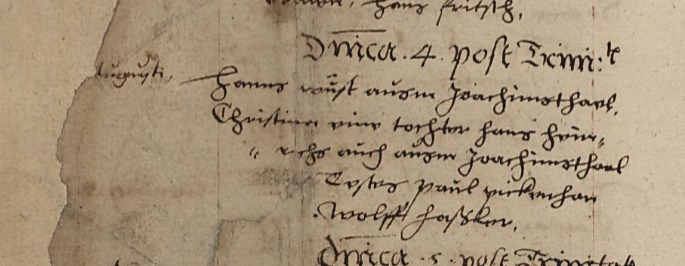 hans fritsch.
Dnica . 4 . post Trini:
Augusti,
Hanns wüst auszm Joachimsthael.
Christina eine tochter hans hein-
richs auch auszm Joachimsthael
Testes paul
Wolff
Dnica . 5 . post Trinitat